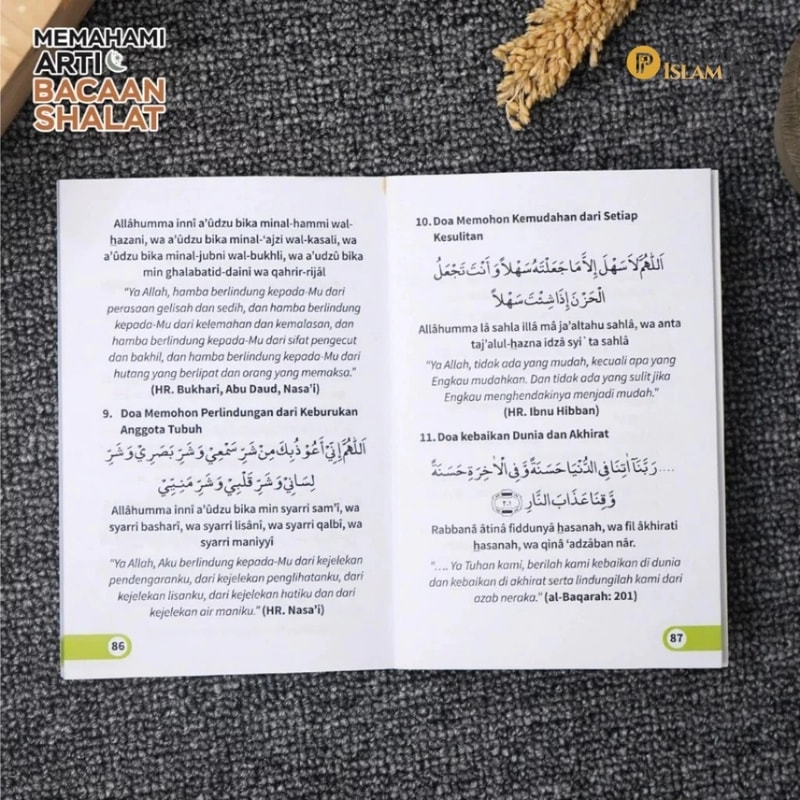 MEMAHAMI
ARTI
BACAAN
SHALAT
ISLAM
Allâhumma innî a'ûdzu bika minal-hammi wal-
ḫazani, wa a'ûdzu bika minal-'ajzi wal-kasali, wa
a'ûdzu bika minal-jubni wal-bukhli, wa a'udzû bika
min ghalabatid-daini wa qahrir-rijâl
"Ya Allah, hamba berlindung kepada-Mu dari
perasaan gelisah dan sedih, dan hamba berlindung
kepada-Mu dari kelemahan dan kemalasan, dan
hamba berlindung kepada-Mu dari sifat pengecut
dan bakhil, dan hamba berlindung kepada-Mu dari
hutang yang berlipat dan orang yang memaksa."
(HR. Bukhari, Abu Daud, Nasa'i)
9. Doa Memohon Perlindungan dari Keburukan
Anggota Tubuh
اَللّٰهُمَّ اِنِّيْ اَعُوْذُبِكَ مِنْ شَرِّ سَمْعِيْ وَشَرِّ بَصَرِيْ وَشَرِّ
لِسَانِيْ وَشَرِّ قَلْبِيْ وَشَرِّ مَنِيِّيْ
Allâhumma innî a'ûdzu bika min syarri sam'î, wa
syarri basharî, wa syarri lisânî, wa syarri qalbî, wa
syarri maniyyî
"Ya Allah, Aku berlindung kepada-Mu dari kejelekan
pendengaranku, dari kejelekan penglihatanku, dari
kejelekan lisanku, dari kejelekan hatiku dan dari
kejelekan air maniku." (HR. Nasa'i)
86
10. Doa Memohon Kemudahan dari Setiap
Kesulitan
اَللّٰهُمَّ لَا سَهْلَ اِلاَّ مَا جَعَلْتَهُ سَهْلاً وَاَنْتَ تَجْعَلُ
الْحَزْنَ اِذَا شِئْتَ سَهْلاً
Allâhumma lâ sahla illâ mâ ja'altahu sahlâ, wa anta
taj'alul-ḫazna idzâ syi`ta sahlâ
"Ya Allah, tidak ada yang mudah, kecuali apa yang
Engkau mudahkan. Dan tidak ada yang sulit jika
Engkau menghendakinya menjadi mudah."
(HR. Ibnu Hibban)
11. Doa kebaikan Dunia dan Akhirat
.... رَبَّنَآ اٰتِنَا فِى الدُّنْيَا حَسَنَةً وَّفِى الْاٰخِرَةِ حَسَنَةً
وَّقِنَا عَذَابَ النَّارِ ٢٠١
Rabbanâ âtinâ fiddunyâ ḫasanah, wa fil âkhirati
ḫasanah, wa qinâ 'adzâban nâr.
".... Ya Tuhan kami, berilah kami kebaikan di dunia
dan kebaikan di akhirat serta lindungilah kami dari
azab neraka." (al-Baqarah: 201)
87